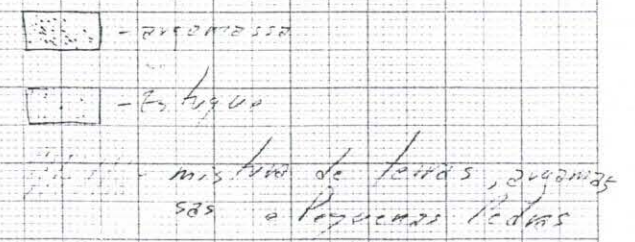 - argamassa
- Estuque
- mistura de terras, argamas
sas e Pequenas Pedras